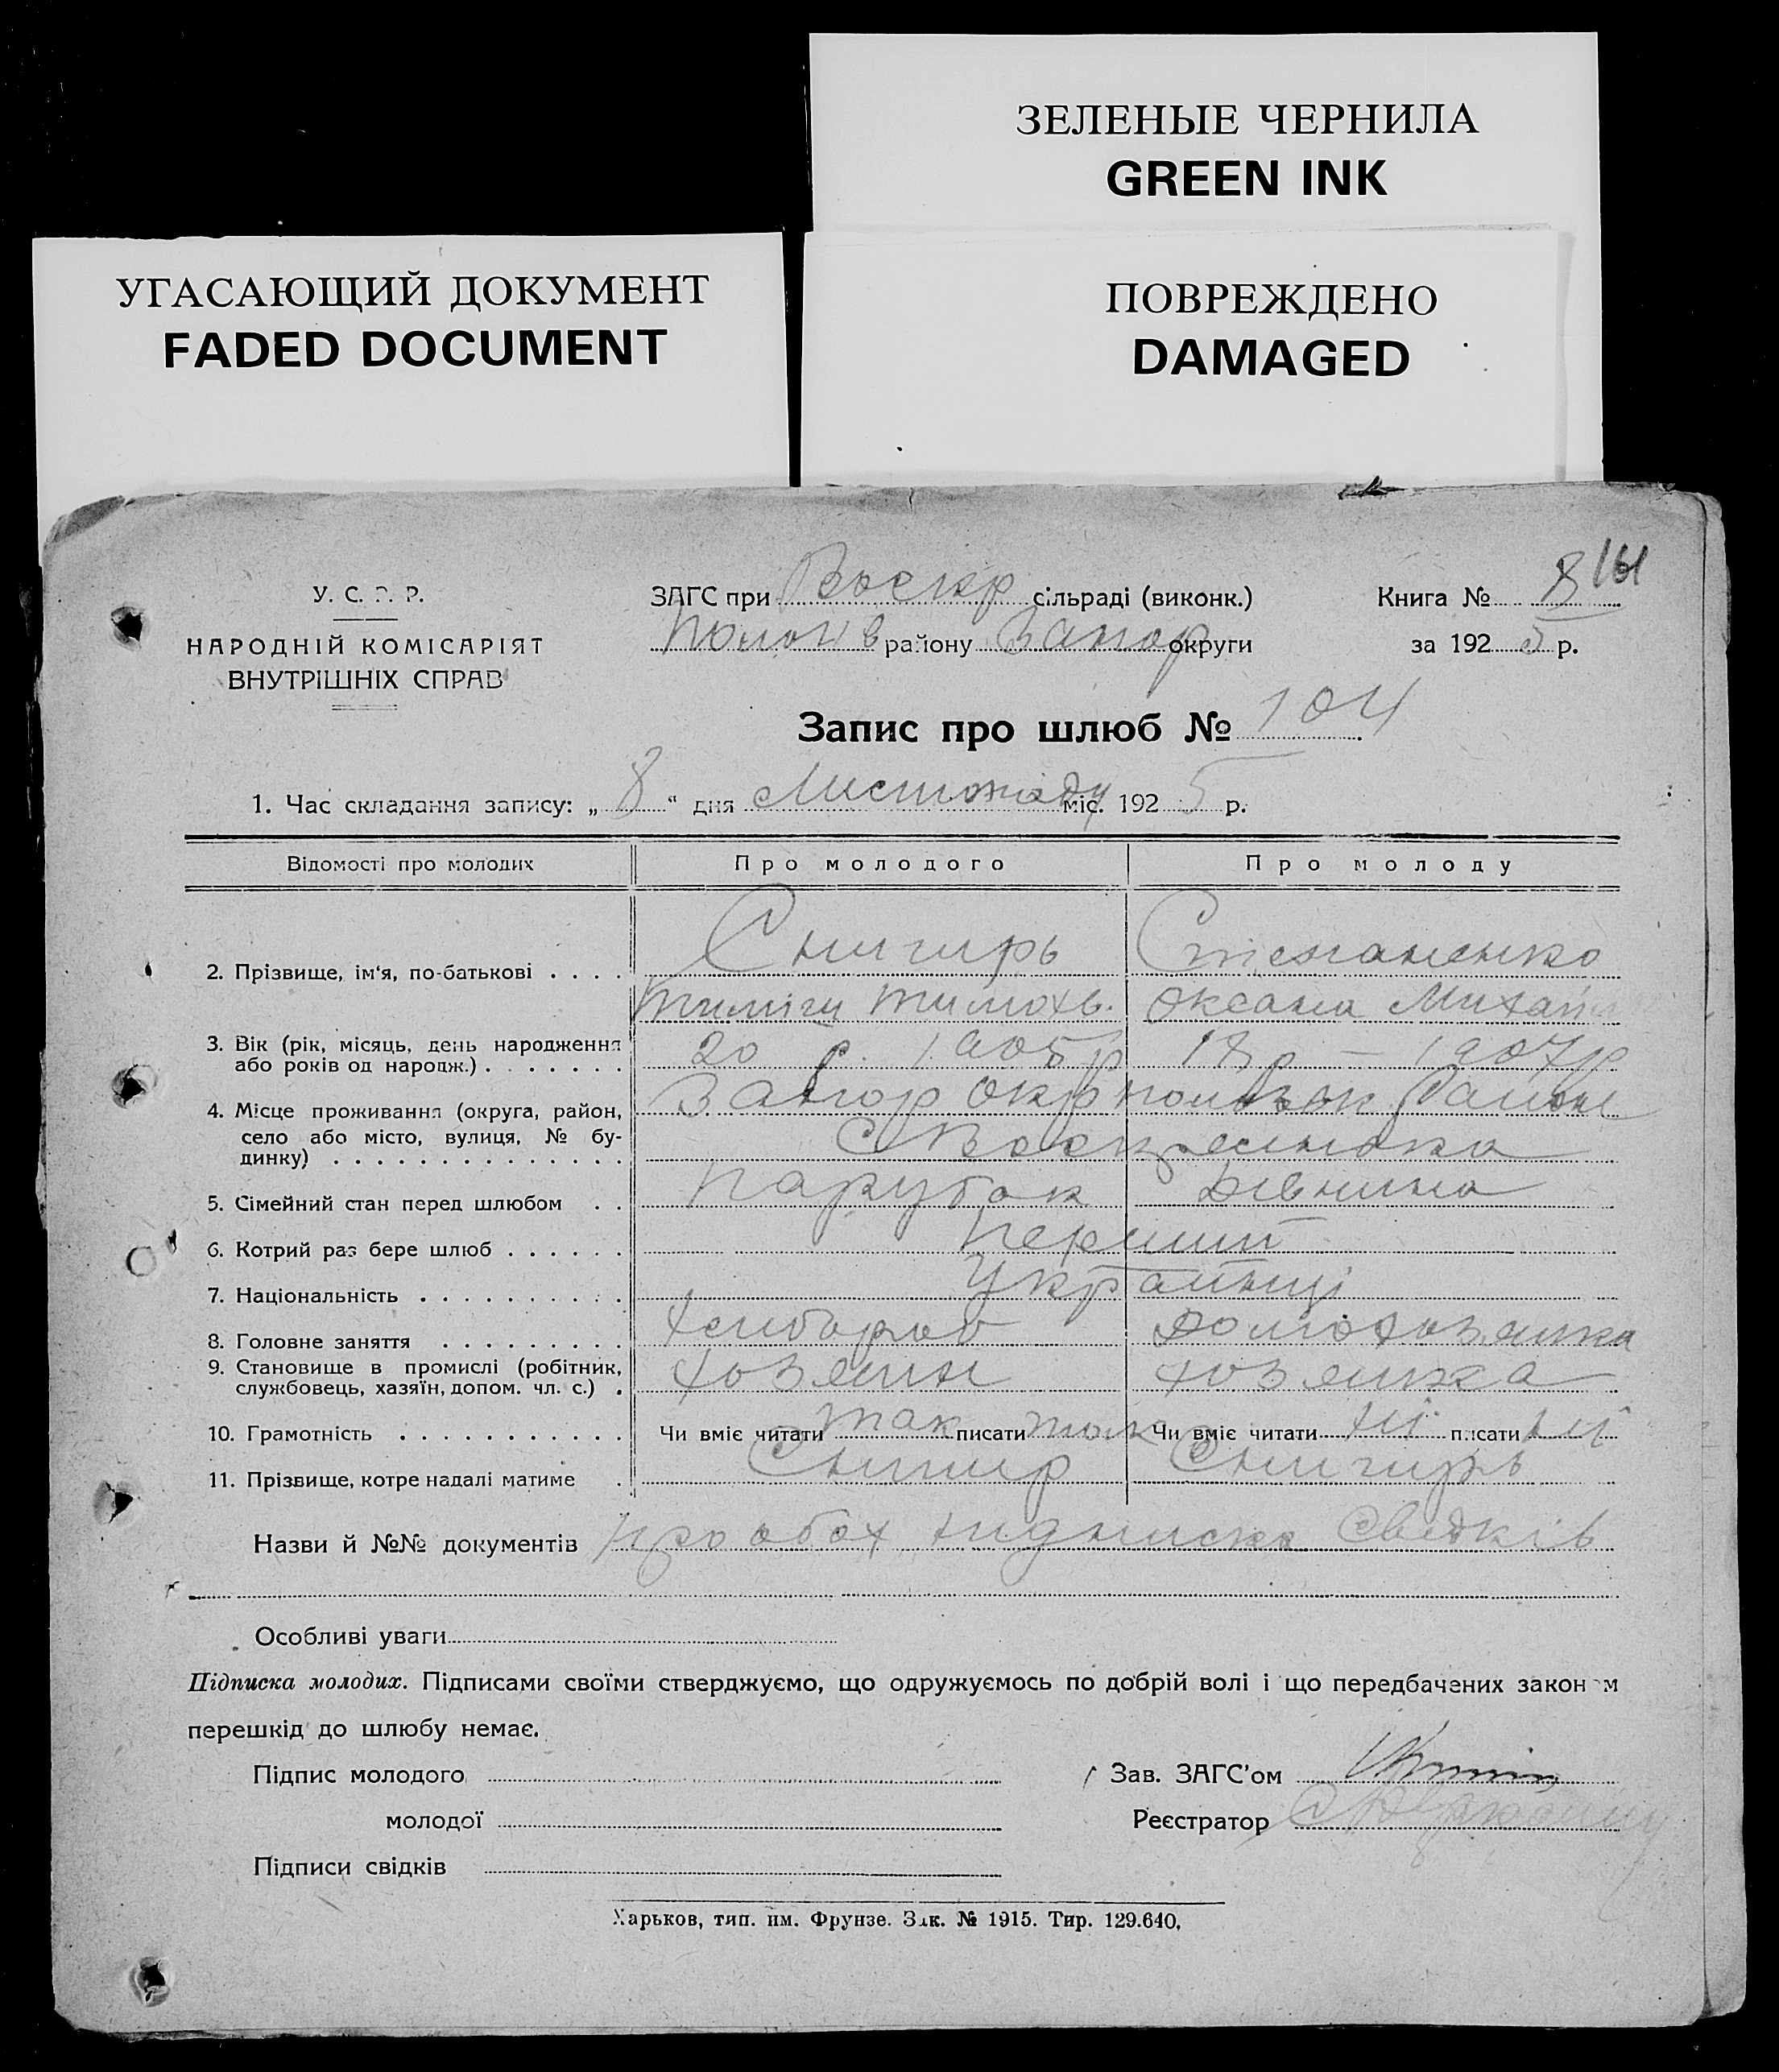 ЗЕЛЕНЫЕ ЧЕРНИЛА
GREEN INK
УГАСАЮЩИЙ ДОКУМЕНТ
FADED DOCUMENT
ПОВРЕЖДЕНО
DAMAGED
161
У. С. Р. Р.
НАРОДНІЙ КОМІСАРІЯТ
ВНУТРІШНІХ СПРАВ
ЗАГС при Воскр сільраді (виконк.)
Полог в району Запор округи
Книга № 8
за 1925 р.
Запис про шлюб № 104
1. Час складання запису: „ 8 “ дня Листопаду міс. 1925 р.
Відомості про молодих Про молодого Про молоду
2. Прізвище, ім‘я, по-батькові . . . . Снигирь Степаненко
Тимохв. Оксана Михай
3. Вік (рік, місяць, день народження
або років од народж.) . . . . . . . 20 р. 1905 р 18 р — 1907 р
4. Місце проживання (округа, район,
село або місто, вулиця, № бу-
динку) . . . . . . . . . . . . . . Запор окр Район
с Воскресенка
5. Сімейний стан перед шлюбом . . Парубок Дівчина
6. Котрий раз бере шлюб . . . . . . Перший
7. Національність . . . . . . . . . . Українці
8. Головне заняття . . . . . . . . . Хлибороб Домохозяика
9. Становище в промислі (робітник,
службовець, хазяїн, допом. чл. с.) . хозяин хозяика
10. Грамотність . . . . . . . . . . . Чи вміє читати так писати так Чи вміє читати ни писати ни
11. Прізвище, котре надалі матиме . Снигир Снигирь
Назви й №№ документів про обох підписка свидків
Особливі уваги
Підписка молодих. Підписами своїми стверджуємо, що одружуємось по добрій волі і що передбачених законом
перешкід до шлюбу немає.
Підпис молодого
молодої
Підписи свідків
Зав. ЗАГС'ом
Реєстратор
Харьков, тип. им. Фрунзе. Зак. № 1915. Тир. 129.640.